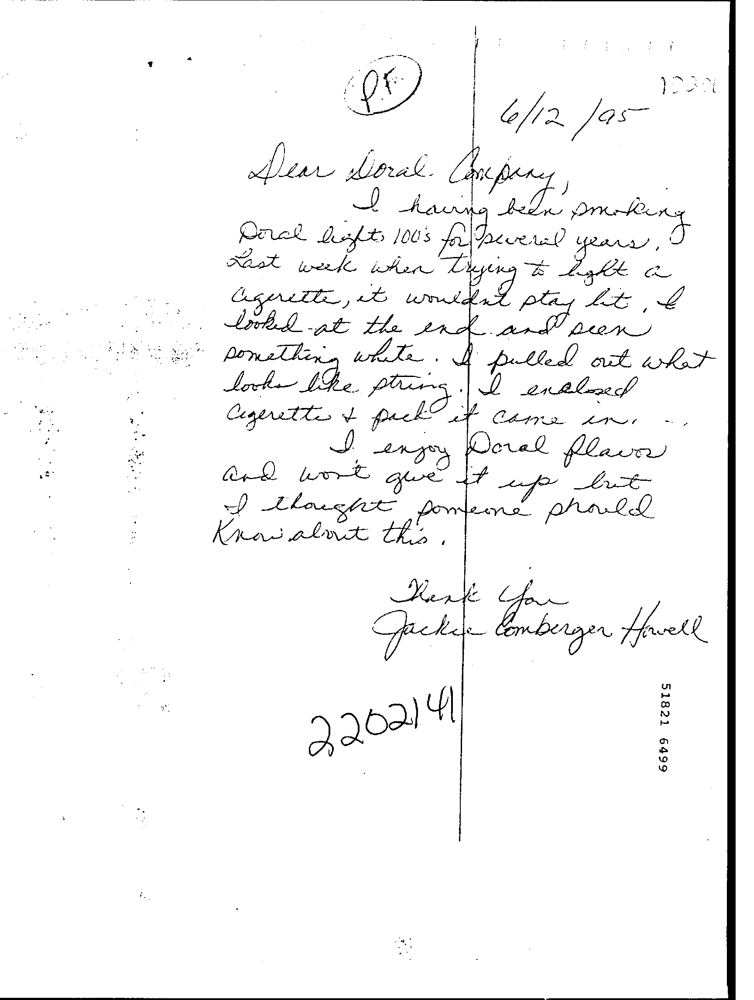 P.F.
6/12/95
Dear Doral Company,
I having been smoking
Doral lights 100's for several years.
Last week when trying to light a
cigerette, it wouldnt stay lit. I
looked at the end and seen
something white. I pulled out what
looks like string. I enclosed
cigerette & pack it came in.
I enjoy Doral flavor
and won't give it up but
I thought someone should
Know about this.
Thank You
Jackie Comberger Howell
2202141
51821 6499